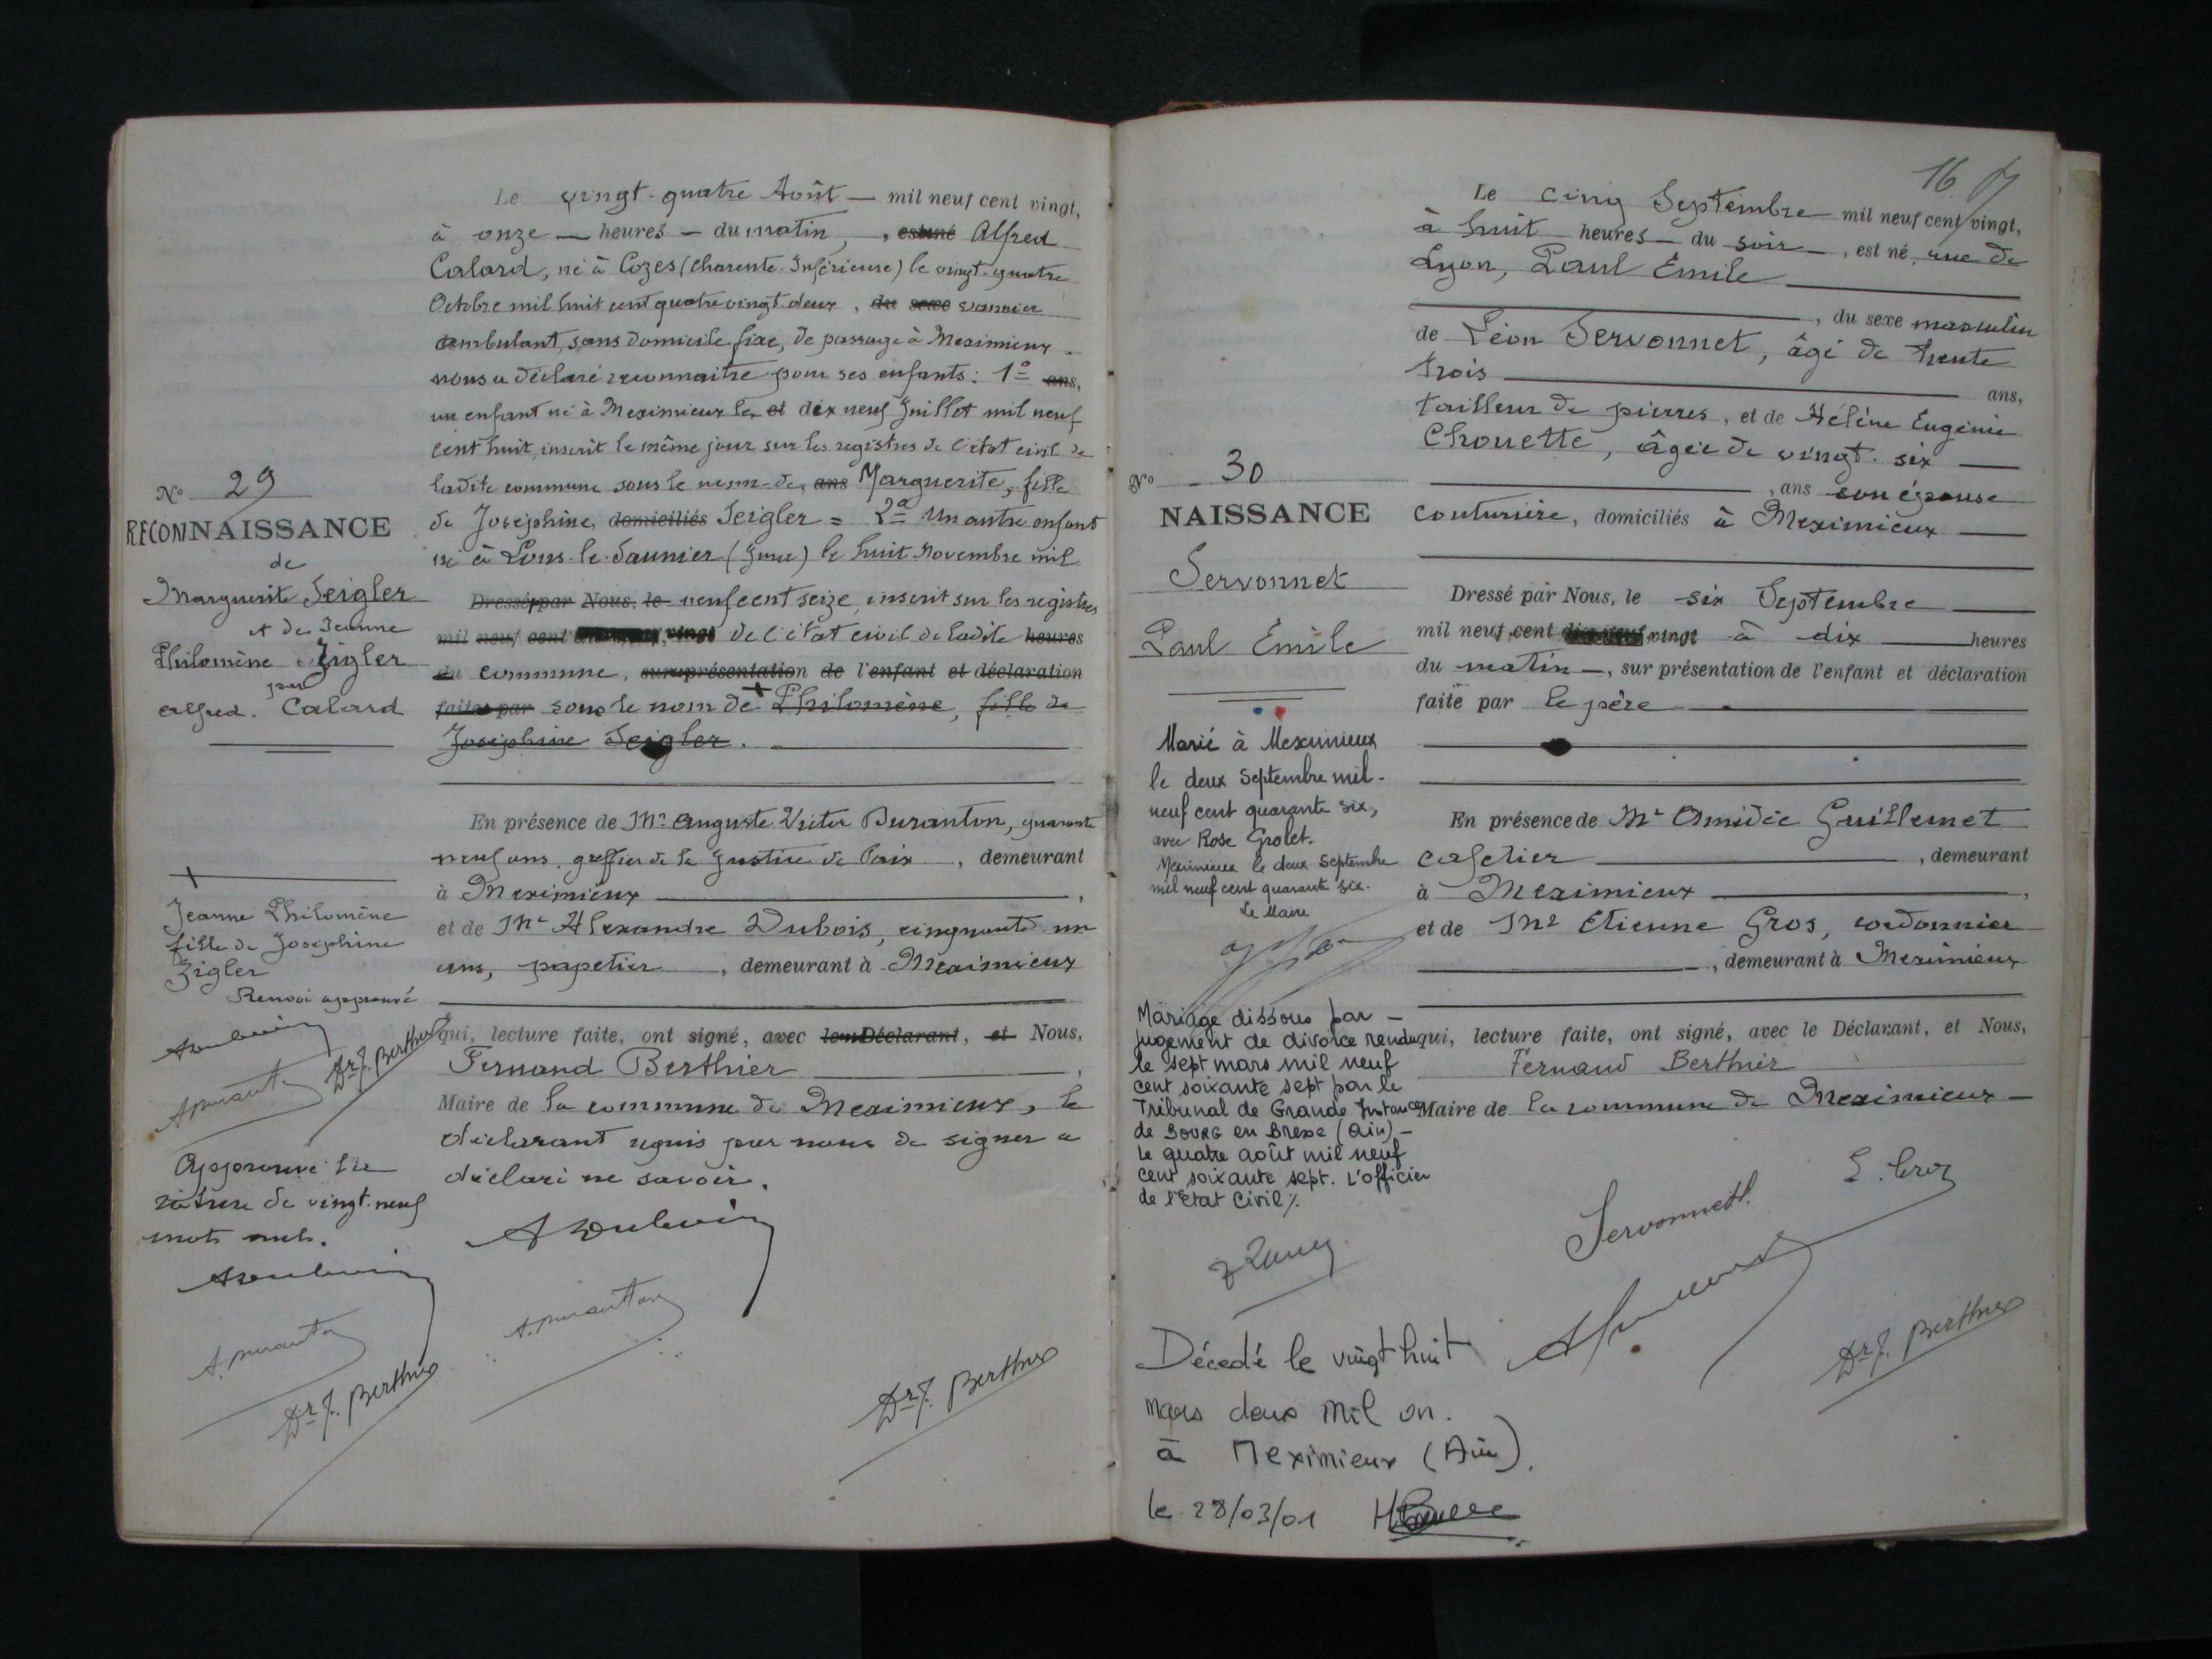 Le vingt-quatre Août — mil neuf cent vingt,
à onze — heures — du matin, , est né Alfred
Calard, né à Cozes (Charente-Inférieure) le vingt-quatre
Octobre mil huit cent quatre vingt deux, du sexe vannier
ambulant, sans domicile fixe, de passage à Meximieux
nous a déclaré reconnaitre pour ses enfants: 1° ans,
un enfant né à Meximieux le et dix neuf Juillet mil neuf
cent huit, inscrit le même jour sur les registres de l'état civil de
ladite commune sous le nom de ans Marguerite, fille
de Joséphine, domiciliés Seigler = 2° Un autre enfant
né à Lons-le-Saunier (Jura) le huit Novembre mil
Dressé par Nous, le neuf cent seize, inscrit sur les registres
mil neuf cent vingt de l'état civil de ladite heures
du commune, sur présentation de l'enfant et déclaration
faite par sous le nom de + Philomène, fille de
Joséphine Seigler.
En présence de Mr Auguste Victor Duranton, quarante
neuf ans, greffier de la Justice de Paix , demeurant
à Meximieux ,
et de Mr Alexandre Dubois, cinquante un
ans, papetier , demeurant à Meximieux
qui, lecture faite, ont signé, avec le Déclarant, et Nous,
Fernand Berthier ,
Maire de la commune de Meximieux, le
déclarant requis par nous de signer a
déclaré ne savoir.
A Duboin
A. Duranton
Dr F. Berthier
No 29
RECONNAISSANCE
de
Marguerite Seigler
et de Jeanne
Philomène Zigler
par
Alfred. Calard
+
Jeanne Philomène
fille de Joséphine
Zigler
Renvoi approuvé
A Duranton
Dr F. Berthier
Approuvé la
rature de vingt-neuf
mots nuls.
A. Duranton
Dr F. Berthier
16
Le cinq Septembre mil neuf cent vingt,
à huit heures — du soir —, est né, rue de
Lyon, Paul Emile
, du sexe masculin
de Léon Servonnet, âgé de trente
trois ans,
tailleur de pierres, et de Hélène Eugénie
Chouette, âgée de vingt-six —
, ans son épouse
couturière, domiciliés à Meximieux —
Dressé par Nous, le six Septembre
mil neuf cent vingt à dix heures
du matin —, sur présentation de l'enfant et déclaration
faite par le père
En présence de Mr Amédée Guillemet
cafetier , demeurant
à Meximieux ,
et de Mr Etienne Gros, cordonnier
, demeurant à Meximieux
qui, lecture faite, ont signé, avec le Déclarant, et Nous,
Fernand Berthier
Maire de la commune de Meximieux —
Servonnet L.
E. Gros
Dr F. Berthier
No 30
NAISSANCE
Servonnet
Paul Emile
Marié à Meximieux
le deux Septembre mil-
neuf cent quarante six,
avec Rose Grolet.
Meximieux le deux Septembre
mil neuf cent quarante six.
Le Maire
Mariage dissous par —
jugement de divorce rendu
le sept mars mil neuf
cent soixante sept par le
Tribunal de Grande Instance
de BOURG en Bresse (Ain) —
Le quatre août mil neuf
cent soixante sept. L'officier
de l'Etat Civil %.
Décedé le vingt huit
mars deux mil un.
à Meximieux (Ain).
le 28/03/01